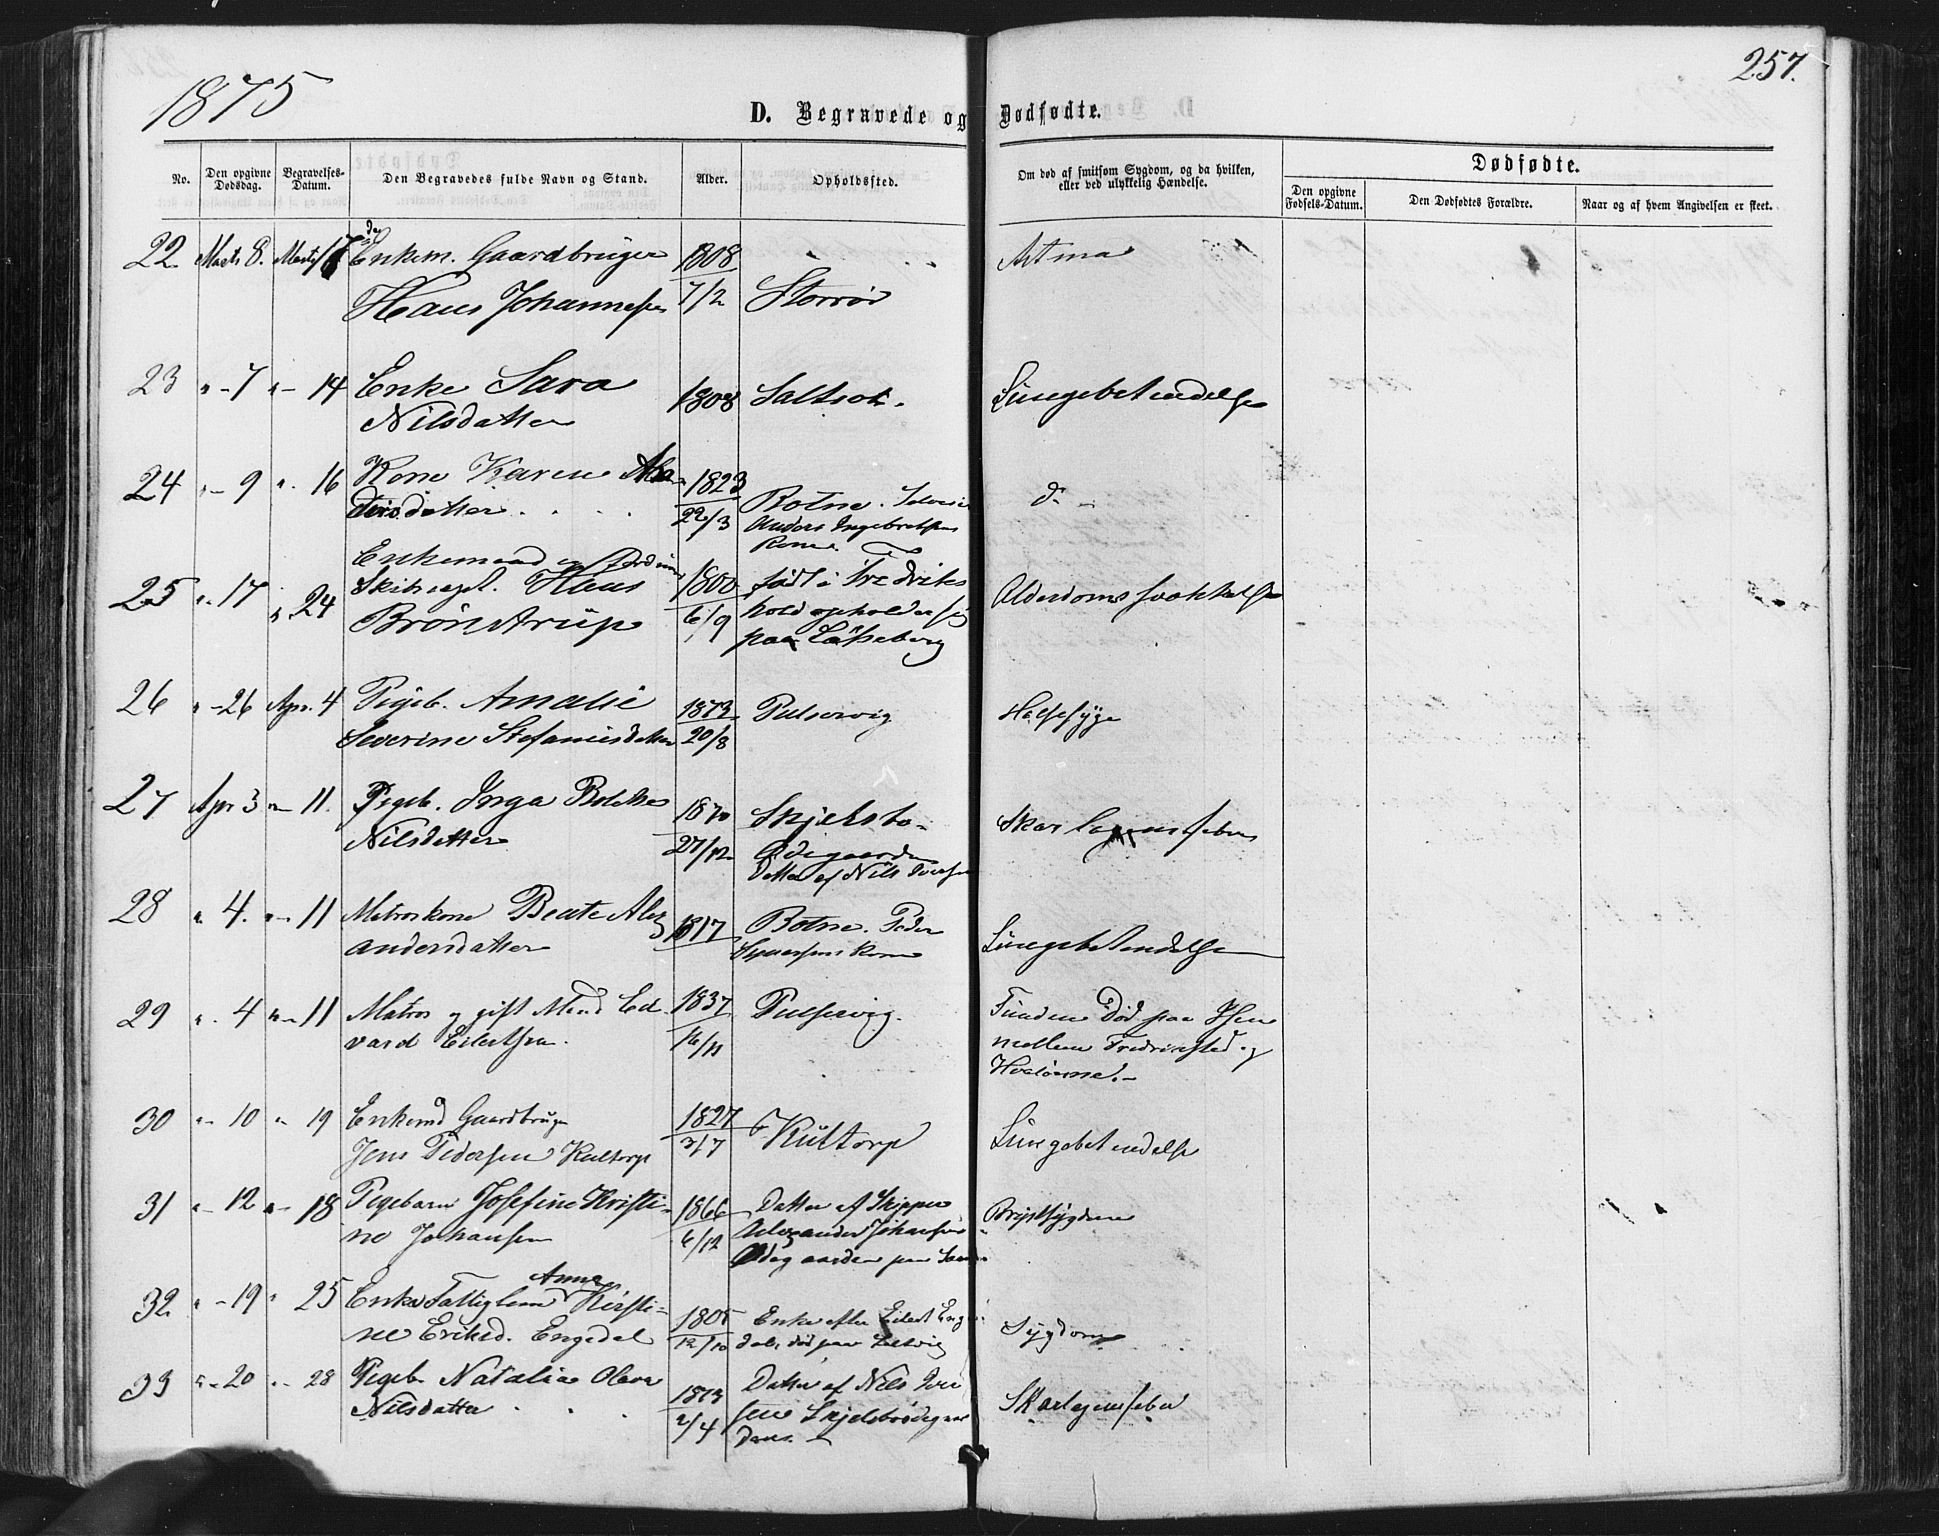 1875
257.
D. Begravede og Dødfødte.
No.
Den opgivne Dødsdag.
Begravelses-Datum.
Den Begravedes fulde Navn og Stand.
Alder.
Opholdssted.
Om død af smitsom Sygdom, og da hvilken, eller ved ulykkelig Hændelse.
Dødfødte.
Den opgivne Fødsels-Datum.
Den Dødfødtes Forældre.
Naar og af hvem Angivelsen er skeet.
22. Marts 8. Marts 17 Enkem. Gaardbruger 1808 Astma
Hans Johannesen 7/2 Storrød
23 " - 7 " - 14 Enke Sara 1808 Saltrot. Lungebetændelse
Nilsdatter
24 " - 9 " - 16 Kone Karen 1823 Botne. d. -
datter 22/3 Anders Ingebretsens
Kone.
Enkemand og
25 " - 17 " 24 Hans 1800 født i Fredriks Alderdomssvækkelse
Brønstrup 6/9 hold opholder sig
paa
26 " - 26 Apr. 4 Pigeb. Amalie 1873 Pulservig Halssyge
Severine Stefaniusdatter 20/8
27 Apr 3 " - 11. Pigeb. Inga 1870 Skarlagensfeber
Nilsdatter 27/12 Ødegaarden
Datter af Nils Iversen
28 " 4. " - 11 Matroskone Beate Alex 1817 Botne. Peder Lungebetændelse
andersdatter Kone
29 " 4 " - 11 Matros og gift Mand Ed 1837 Pulservig. Funden Død paa Isen
vard Eilertsen. 16/11 mellem Fredrikstad og
Hvaløerne. -
30 " - 10 " - 19 Enkemd Gaardbruger 1827 Kultorp Lungebetændelse
Jens Pedersen Kultorp 3/7
31 " - 12 " - 18 Pigebarn Josefine Kristi- 1866 Datter af Skipper Brystsygdom
ne Johansen 6/12 Alexander Johansen
Ødegaarden paa
Anna
32 " - 19 " 25 Enke Fattiglem Kirsti- 1805 Enke efter Eilert Enge Sygdom
ne Eriksd. Engedal 12/10 dal, død paa
33 " - 20 " - 28 Pigeb. Natalia Olava 1873 Datter af Nils Iver Skarlagensfeber
Nilsdatter 2/4 sen Skjelsbrødegaar
den. -